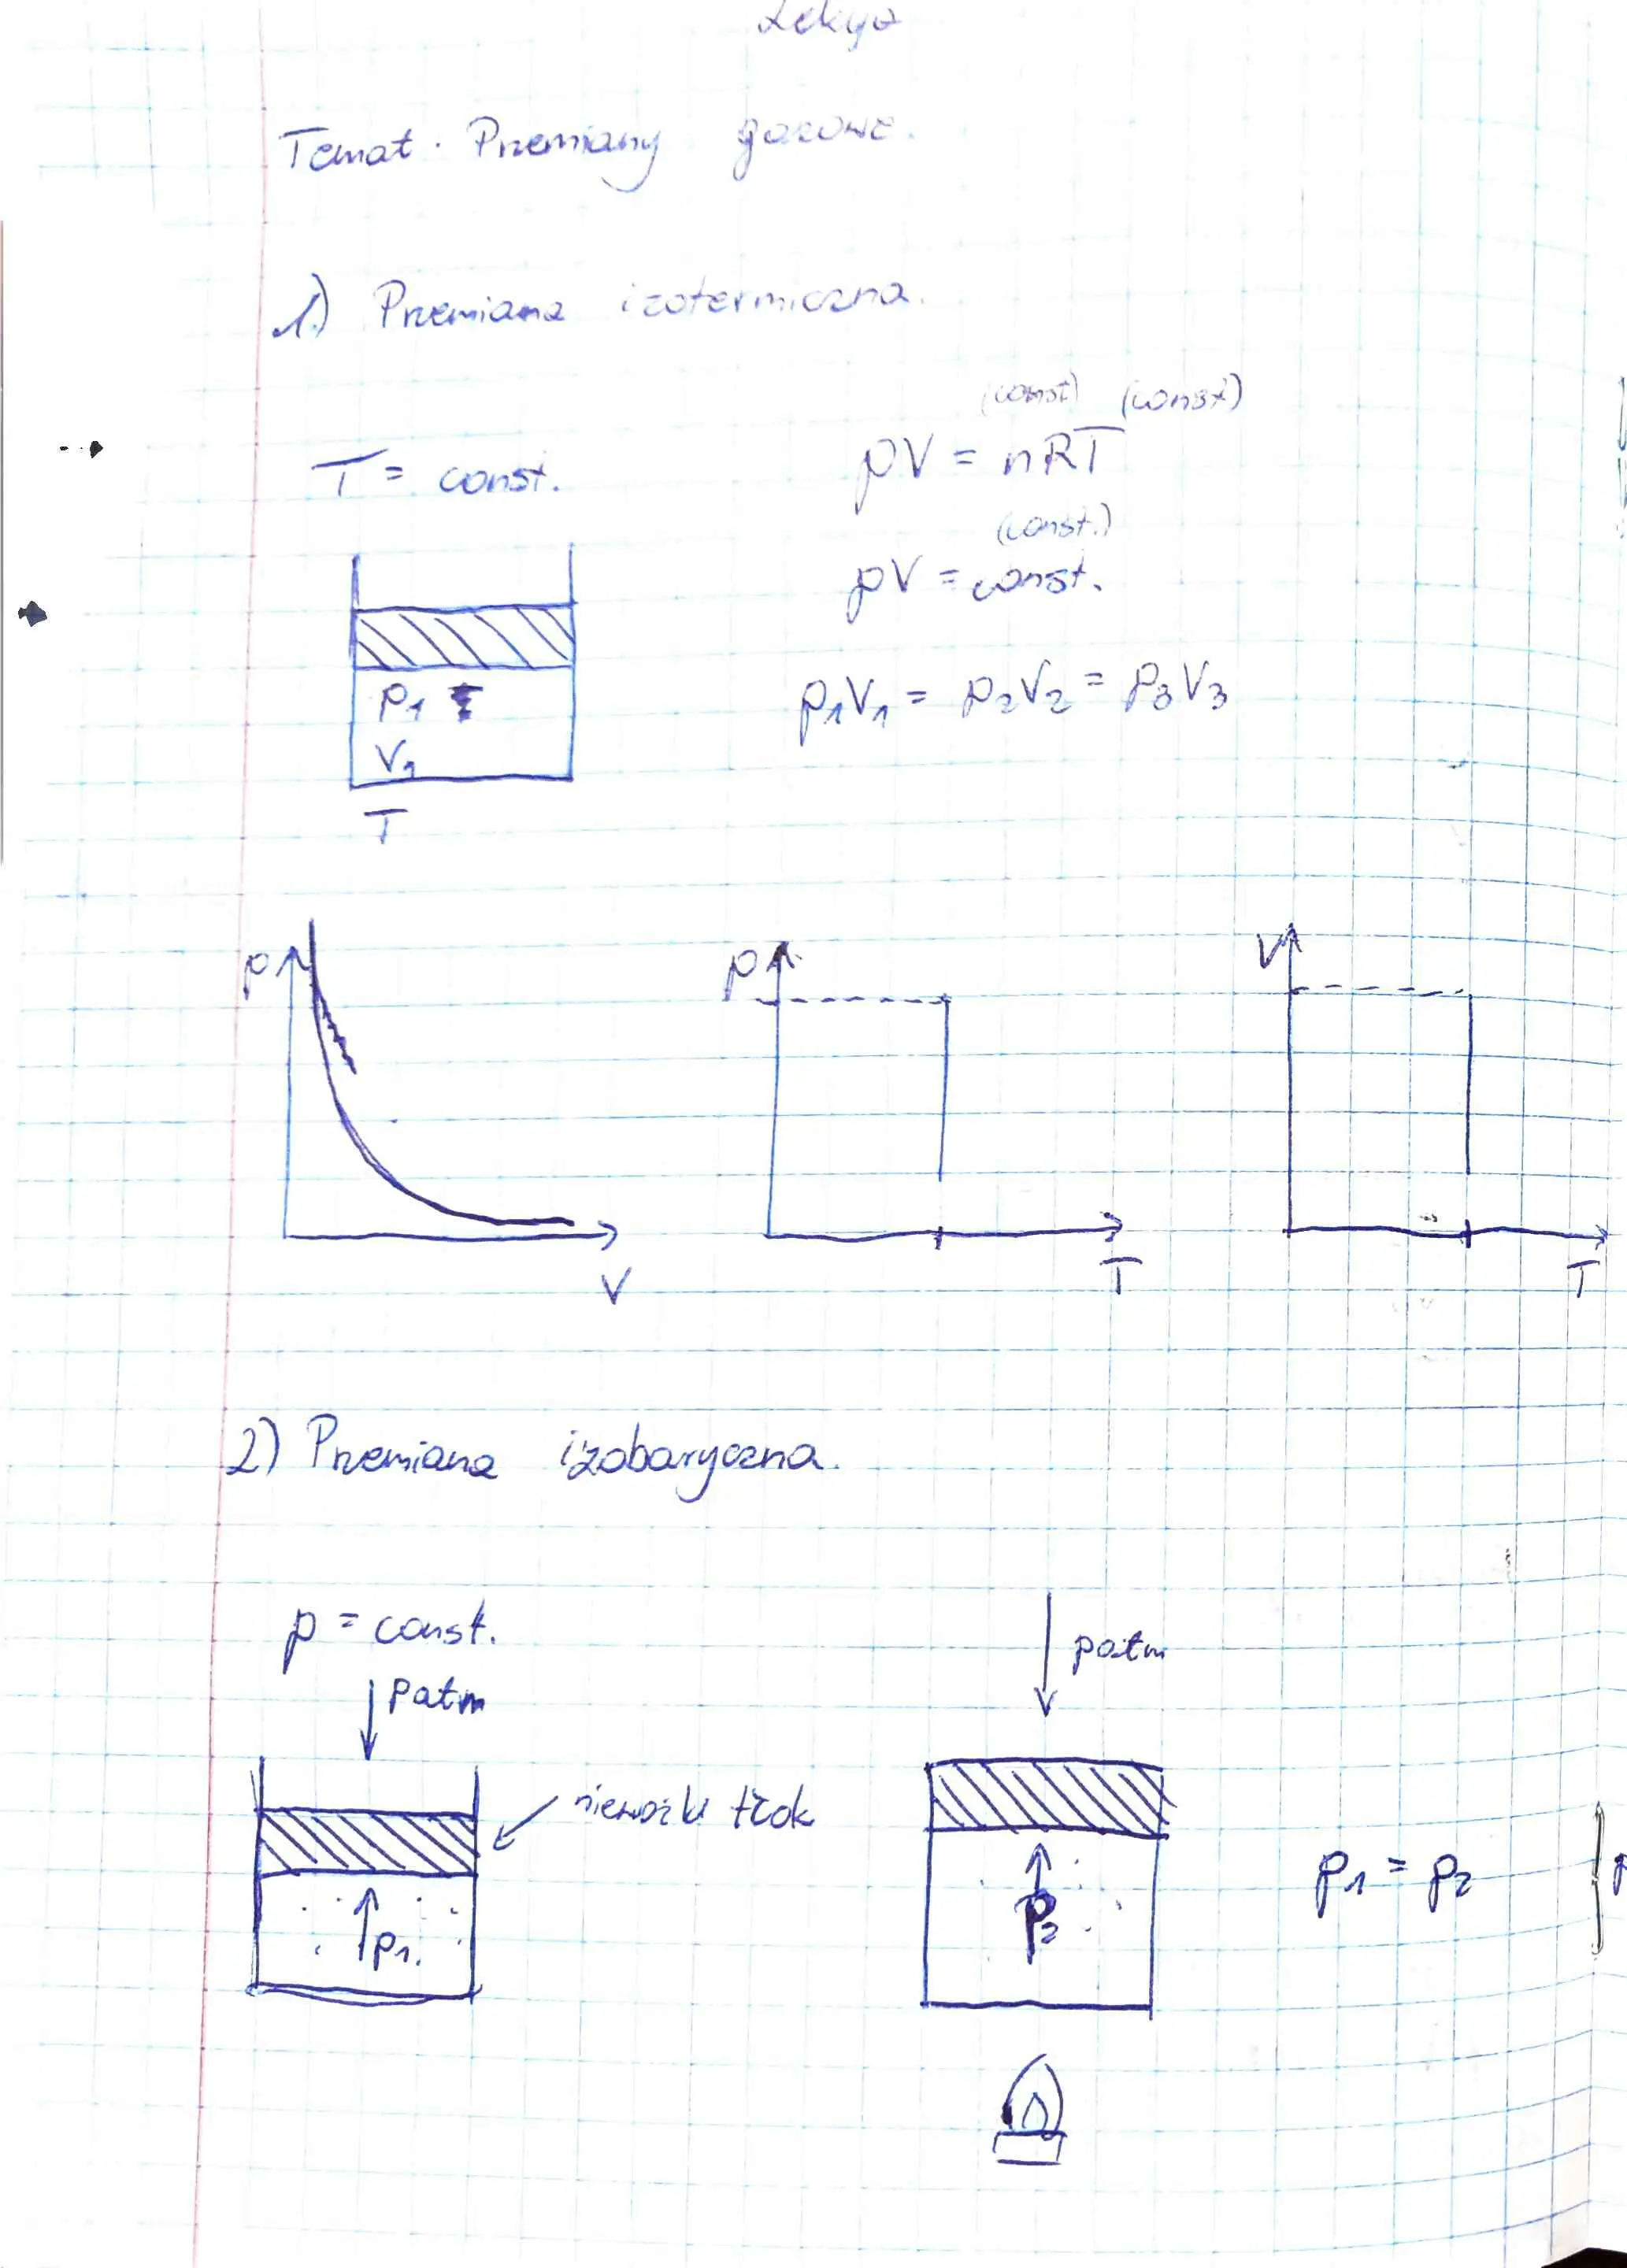 Lekcja
Temat. Przemiany gazowe.
1.) Przemiana izotermiczna.
(const) (const)
T = const. pV = nRT
(const.)
pV = const.
p₁V₁ = p₂V₂ = p₃V₃
p₁
V₁
T
p V
p T
V T
2) Przemiana izobaryczna.
p = const.
patm
patm
nieważki tłok
p₁
p₂
p₁ = p₂